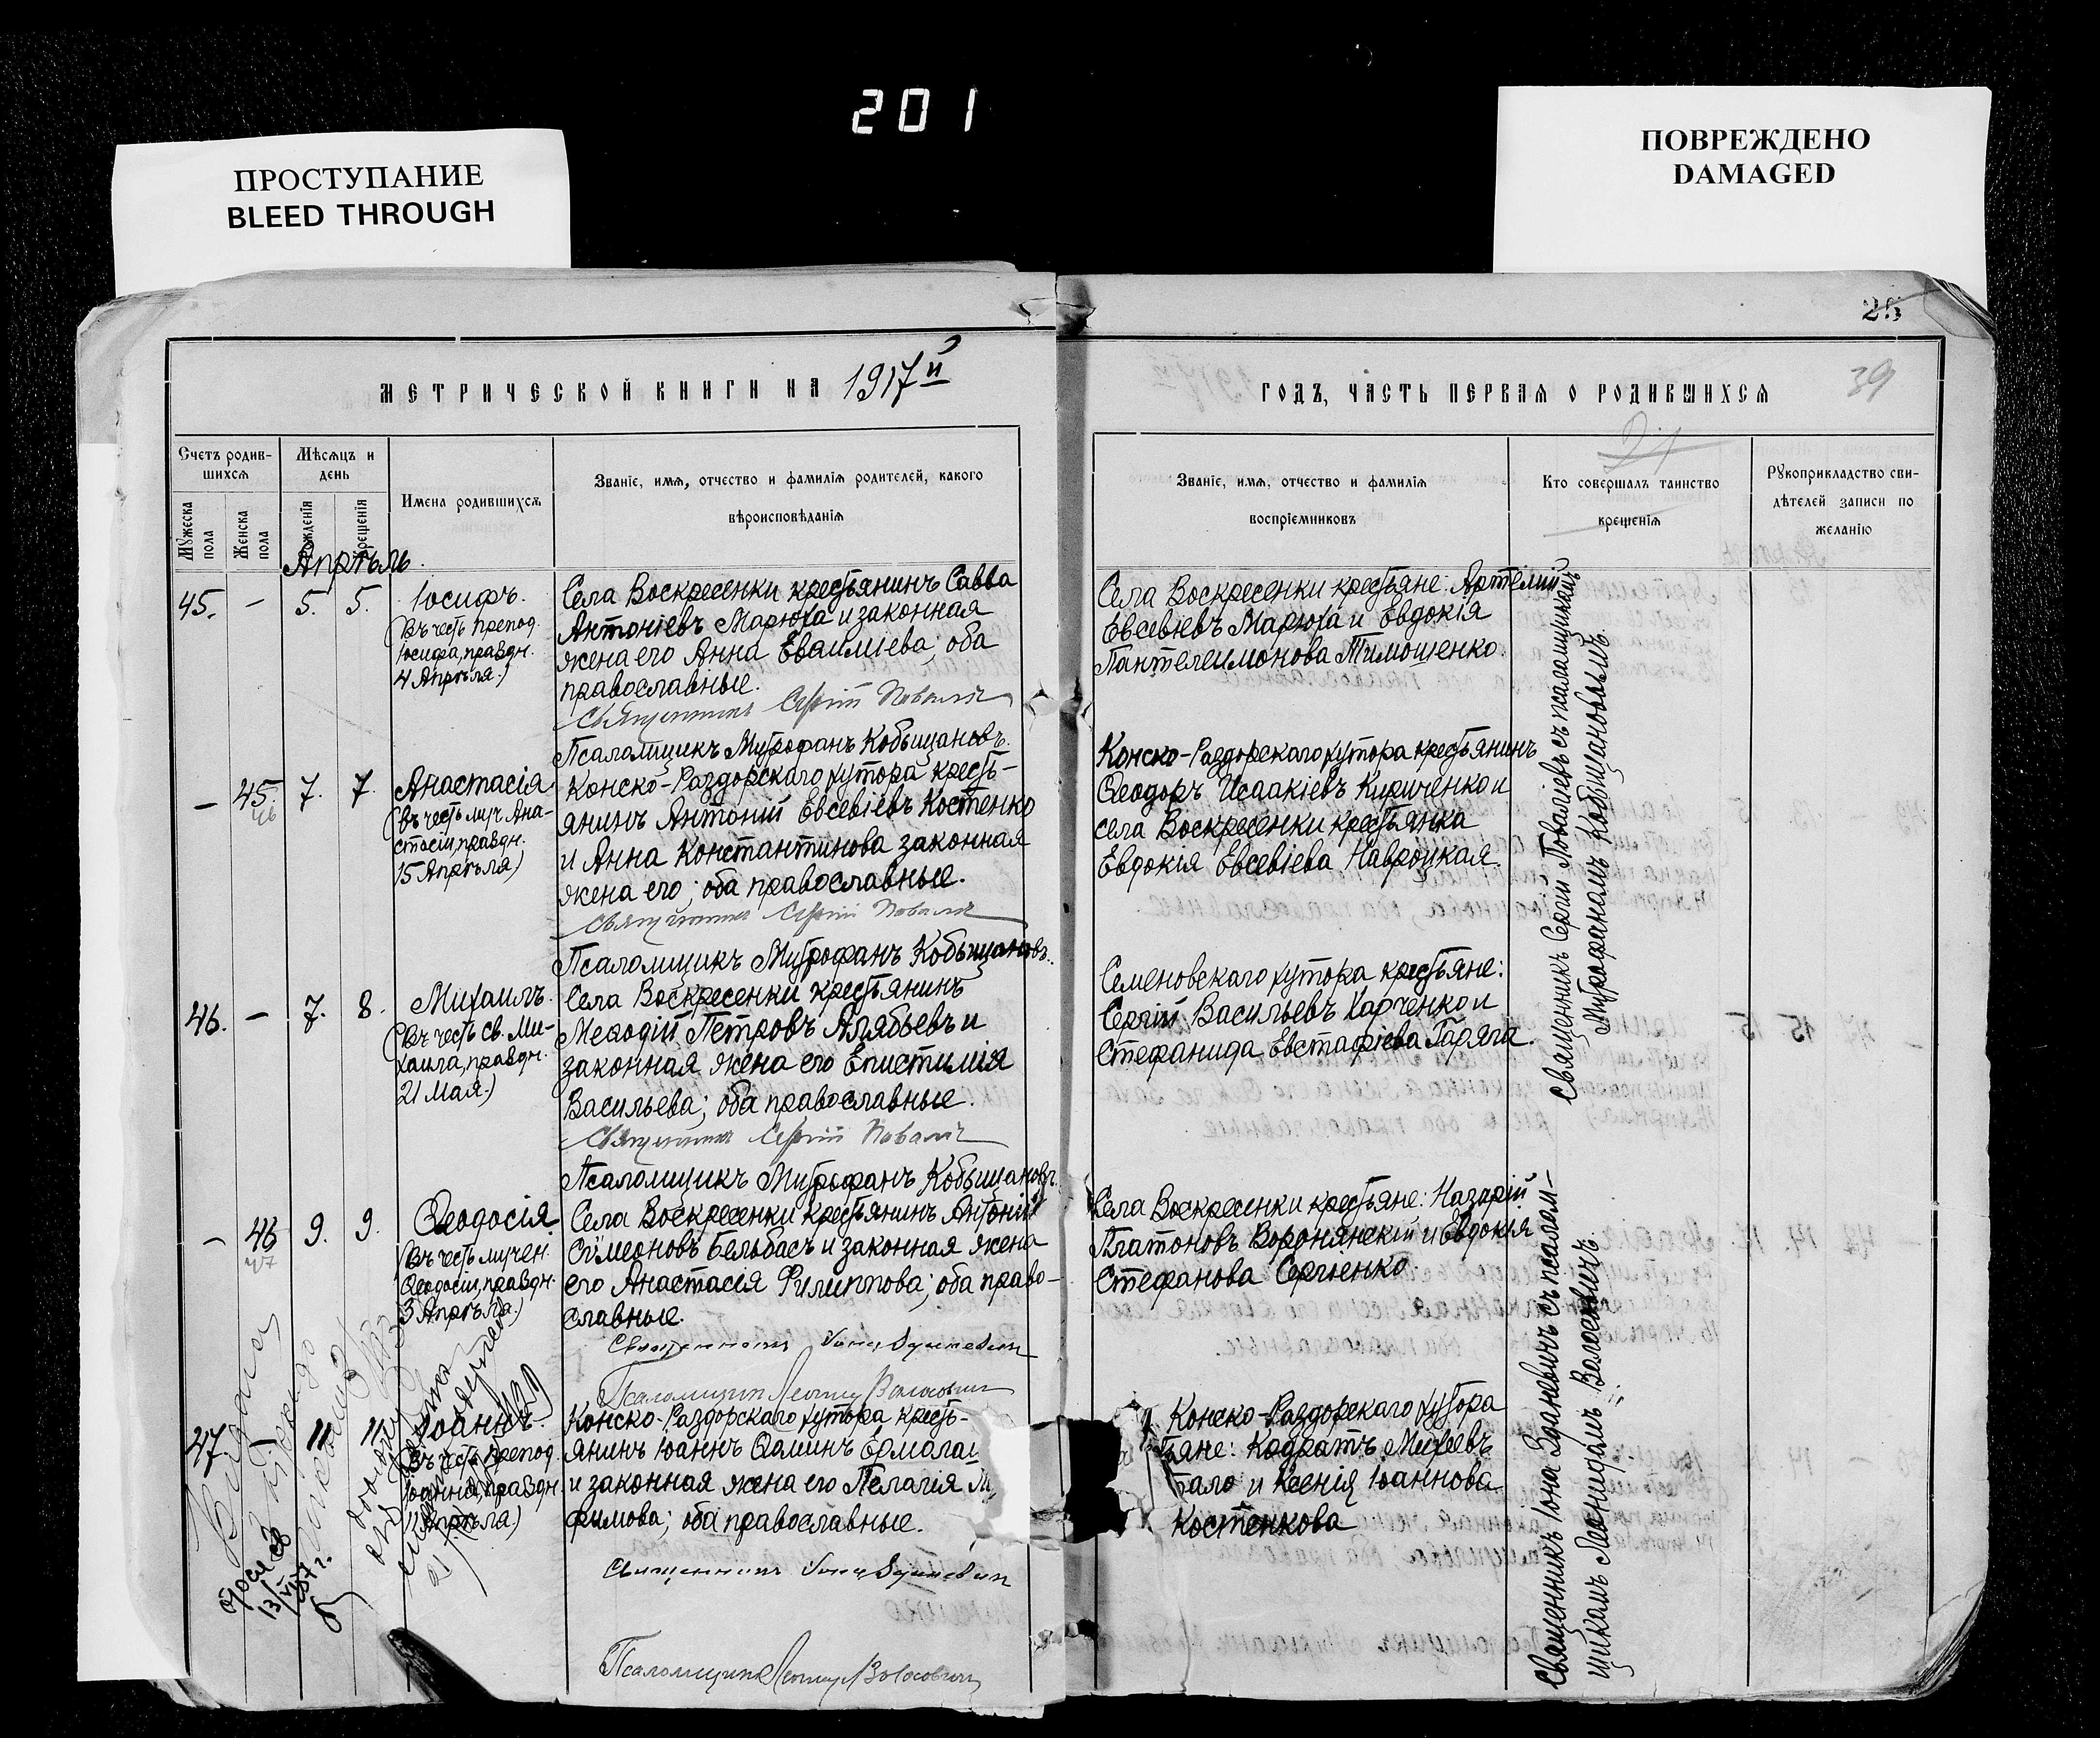 201
ПРОСТУПАНИЕ
BLEED THROUGH
ПОВРЕЖДЕНО
DAMAGED
МЕТРИЧЕСКОЙ КНИГИ НА 1917й
Счетъ родив-
шихсѧ
Мѣсѧцъ и
день
Мужеска
пола
Женска
пола
рожденіѧ
крещеніѧ
Имена родившихсѧ
Званіе, имѧ, отчество и фамиліѧ родителей, какого
вѣроисповѣданіѧ
Апрѣль.
45. – 5. 5. Іосифъ.
(Въ честь препод.
Іосифа, праздн.
4 Апрѣля.)
Села Воскресенки крестьянинъ Савва
Антоніевъ Марюха и законная
жена его Анна Евсилиева; оба
православные.
Священникъ Сергій
Псаломщикъ Митрофанъ Кобыщановъ.
– 45. 7. 7. Анастасія
46
(Въ честь муч. Ана-
стасіи, праздн.
15 Апрѣля)
Конско-Раздорскаго хутора кресть-
янинъ Антоній Евсевіевъ Костенко
и Анна Константинова законная
жена его; оба православные.
Священникъ Сергій
Псаломщикъ Митрофанъ Кобыщановъ.
46. – 7. 8. Михаилъ.
(Въ честь св. Ми-
хаила, праздн.
21 Мая.)
Села Воскресенки крестьянинъ
Меѳодій Петровъ Алябьевъ и
законная жена его Епистимія
Васильева; оба православные.
Священникъ Сергій
Псаломщикъ Митрофанъ Кобыщановъ.
– 46 9. 9. Ѳеодосія
47
(Въ честь мучен.
Ѳеодосіи, праздн.
3 Апрѣля.)
Села Воскресенки крестьянинъ Антоній
Сѵмеоновъ Бельбасъ и законная жена
его Анастасія Филиппова; оба право-
славные.
Священникъ Іона
Псаломщикъ Леонидъ Волосевичъ
47. – 11 11 Іоаннъ.
(Въ честь препод.
Іоанна, праздн.
11 Апрѣла)
Конско-Раздорскаго хутора кресть-
янинъ Іоаннъ Ѳоминъ
и законная жена его Пелагія
фимова; оба православные.
Священникъ Іона
Псаломщикъ Леонидъ Волосевичъ
13/VII
ГОДЪ, ЧАСТЬ ПЕРВАѦ О РОДИВШИХСѦ
39
Званіе, имѧ, отчество и фамиліѧ
воспріемниковъ
Кто совершалъ таинство
крещеніѧ
Рукоприкладство сви-
дѣтелей записи по
желанію
Села Воскресенки крестьяне: Артемій
Евсевіевъ Марюха и Евдокія
Пантелеимонова Тимошенко.
Конско-Раздорскаго хутора крестьянинъ
Ѳеодоръ Исаакіевъ Кириченко и
села Воскресенки крестьянка
Евдокія Евсевіева Навроцкая.
Семеновскаго хутора, крестьяне:
Сергій Васильевъ Харченко и
Стефанида Евстафіева Гаряга.
Села Воскресенки крестьяне: Назарій
Платоновъ Воронянскій и Евдокія
Стефанова Сергіенко.
Конско-Раздорскаго хутора
яне: Кодратъ Михеевъ
тало и Ксенія Іоаннова
Костенкова
Священникъ Сергій Поваліевъ съ псаломщикомъ
Митрофаномъ Кобыщановымъ.
Священникъ Іона съ псалом-
щикомъ Леонидомъ Волосевичъ.